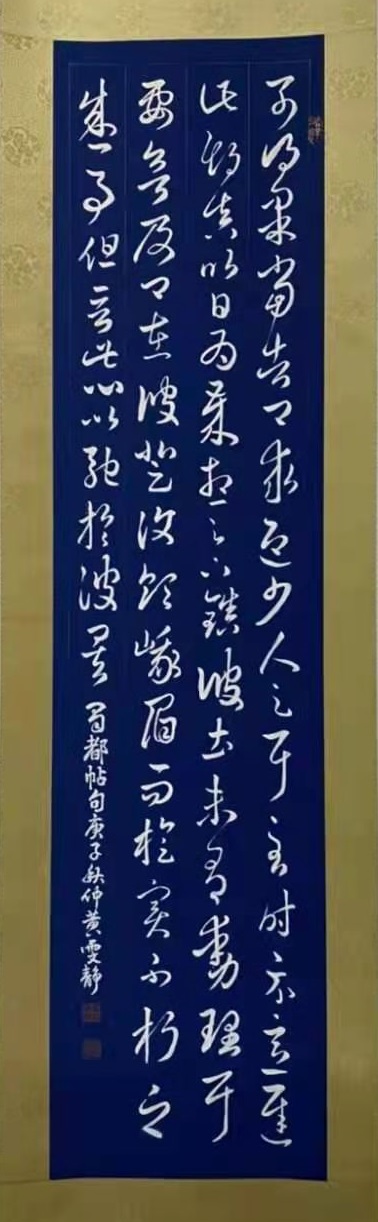 可得果當告卿求迎少人足耳至時示意遲
此期真以日為歲想足下鎮彼土未有動理耳
要欲及卿在彼登汶領峨眉而旋實不朽之
盛事但言此心以馳於彼矣
蜀都帖句庚子秋仲黃雯靜